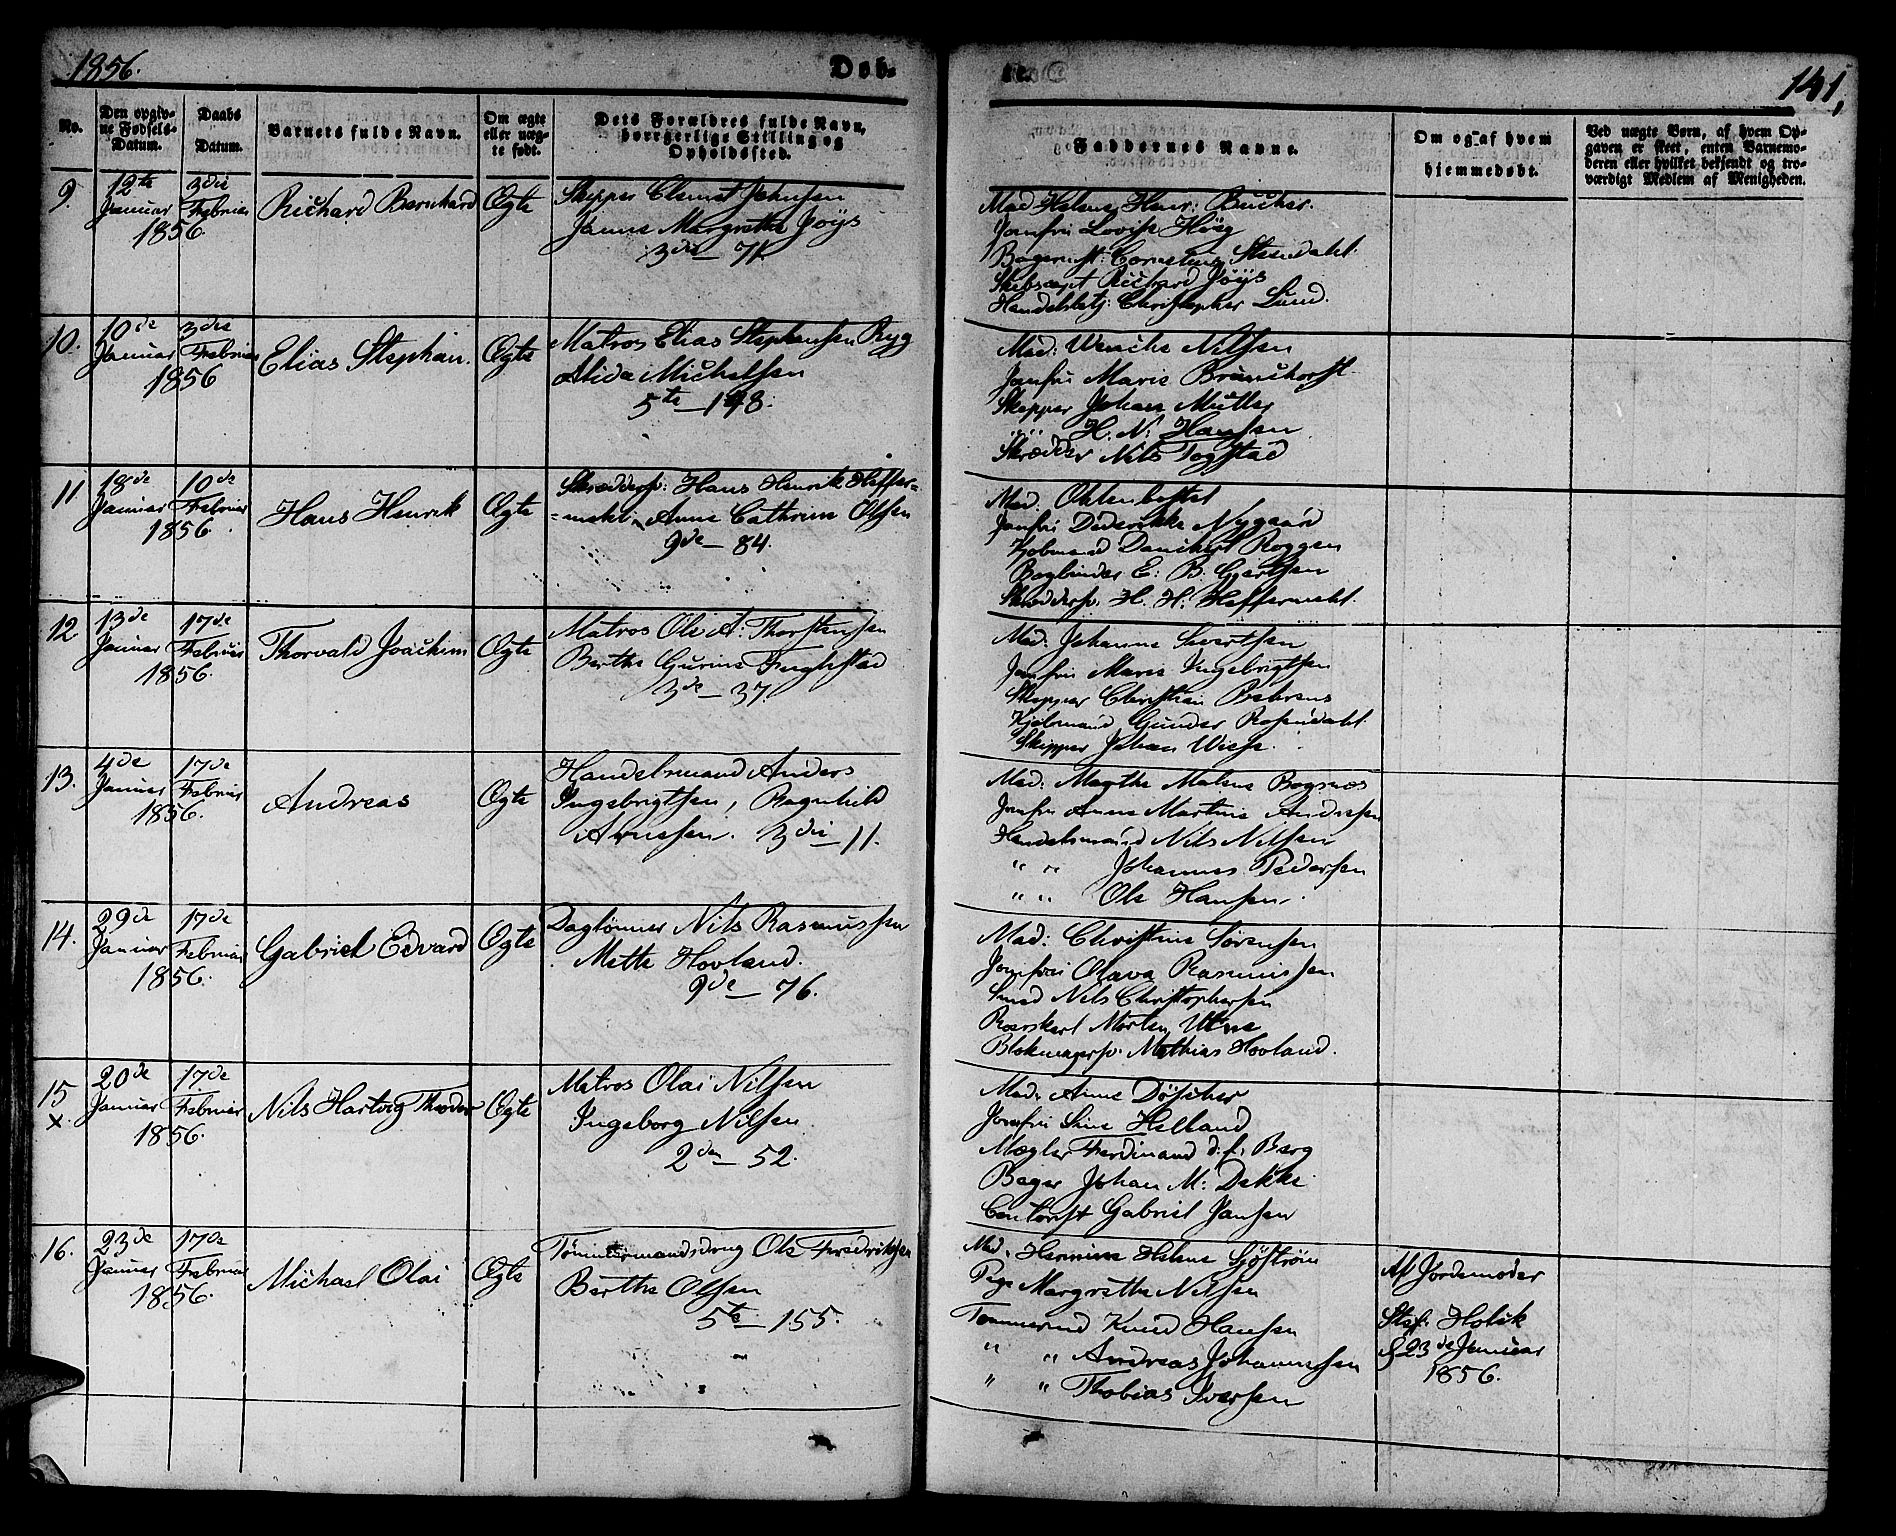 1856.
Døb-
te.
141,
No.
Den opgiv-
ne Fødsels-
Datum.
Daabs
Datum.
Barnets fulde Navn.
Om ægte
eller uæg-
te født.
Dets Forældres fulde Navn,
borgerlige Stilling og
Opholdssted.
Faddernes Navne.
Om og af hvem
hjemmedøbt.
Ved uægte Børn, af hvem Op-
gaven er skeet, enten Barnemo-
deren eller hvilket bekjendt og tro-
værdigt Medlem af Menigheden.
9.
12te
Januar
3die
Februar
1856.
Richard Bernhard
Ægte
Skipper Clemet Johnsen
Janna Margrethe Jöys
3die – 71.
Mad Helene Henr: Bucher.
Jomfru Lovise Höeg
Bagerm: Cornelius Steendahl.
Richard Jöys
Christopher Lund.
10.
10de
Januar
3die
Februar
1856
Elias Stephan.
Ægte
Matros Elias Stephensen Ryg
Alida Michelsen
5te – 148.
Mad: Wenche Nilsen
Jomfru Marie Brunchorst
Skipper Johan Müller
" " H. N. Hansen
Skrædder Nils Togstad
11
18de
Januar
10de
Februar
1856.
Hans Henrik
Ægte
Skrædersv: Hans Henrik Heffer=
=mehl, Anne Cathrine Olsen
9de – 84.
Mad.
Jomfru Diderikke Nygaard
Kjøbmand Danchert Roggen
Bogbinder E: B. Gjertsen
Skrædersv. H. H. Heffermehl.
12
13de
Januar
17de
Februar
1856.
Thorvald Joachim
Ægte
Matros Ole A: Thorstensen
Berthe Gurine Fuglestad
3de – 37.
Mad. Johanne Sivertsen
Jomfru Marie Ingebrigtsen
Skipper Christian Behrens
Kjøbmand Gunder Rosendahl
Skipper Johan Wiese.
13.
4de
Januar
17de
Februar
1856.
Andreas
Ægte
Handelsmand Anders
Ingebrigtsen, Ragnhild
Arnesen. 3die – 11.
Mad: Marthe Malene Bognøs
Jomfru Anne Martine Andersen
Handelsmand Nils Nilsen
" " Johannes Pedersen
" " Ole Hansen.
14.
29de
Januar
17de
Februar
1856.
Gabriel Edvard
Ægte
Daglønner Nils Rasmussen
Mette Hovland.
9de – 76.
Mad: Christine Sörensen
Jomfru Olava Rasmussen
Smed Nils Christophersen
Roerskarl Morten Utne
Blokmagersv. Mathias Hovland.
15
x
20de
Januar
17de
Februar
1856.
Nils Hartvig Theodor
Ægte
Matros Olai Nilsen
Ingeborg Nilsen.
2den – 52.
Mad. Anne Döscher
Jomfru Sine Helland
Mægler Ferdinand d. f. Berg
Bager Johan M: Dekke
Contorist Gabriel Jansen
16.
23de
Januar
17de
Februar
1856.
Michael Olai
Ægte
Tømmermandsdreng Ole Fredriksen
Berthe Olsen
5te – 155.
Mad. Hermine Helene Sjöström
Pige Margrethe Nilsen
Tømmermd Knud Hansen
" " Andreas Johannessen
" " Thobias Iversen
Af Jordemoder
Holck
23de Januar
1856.